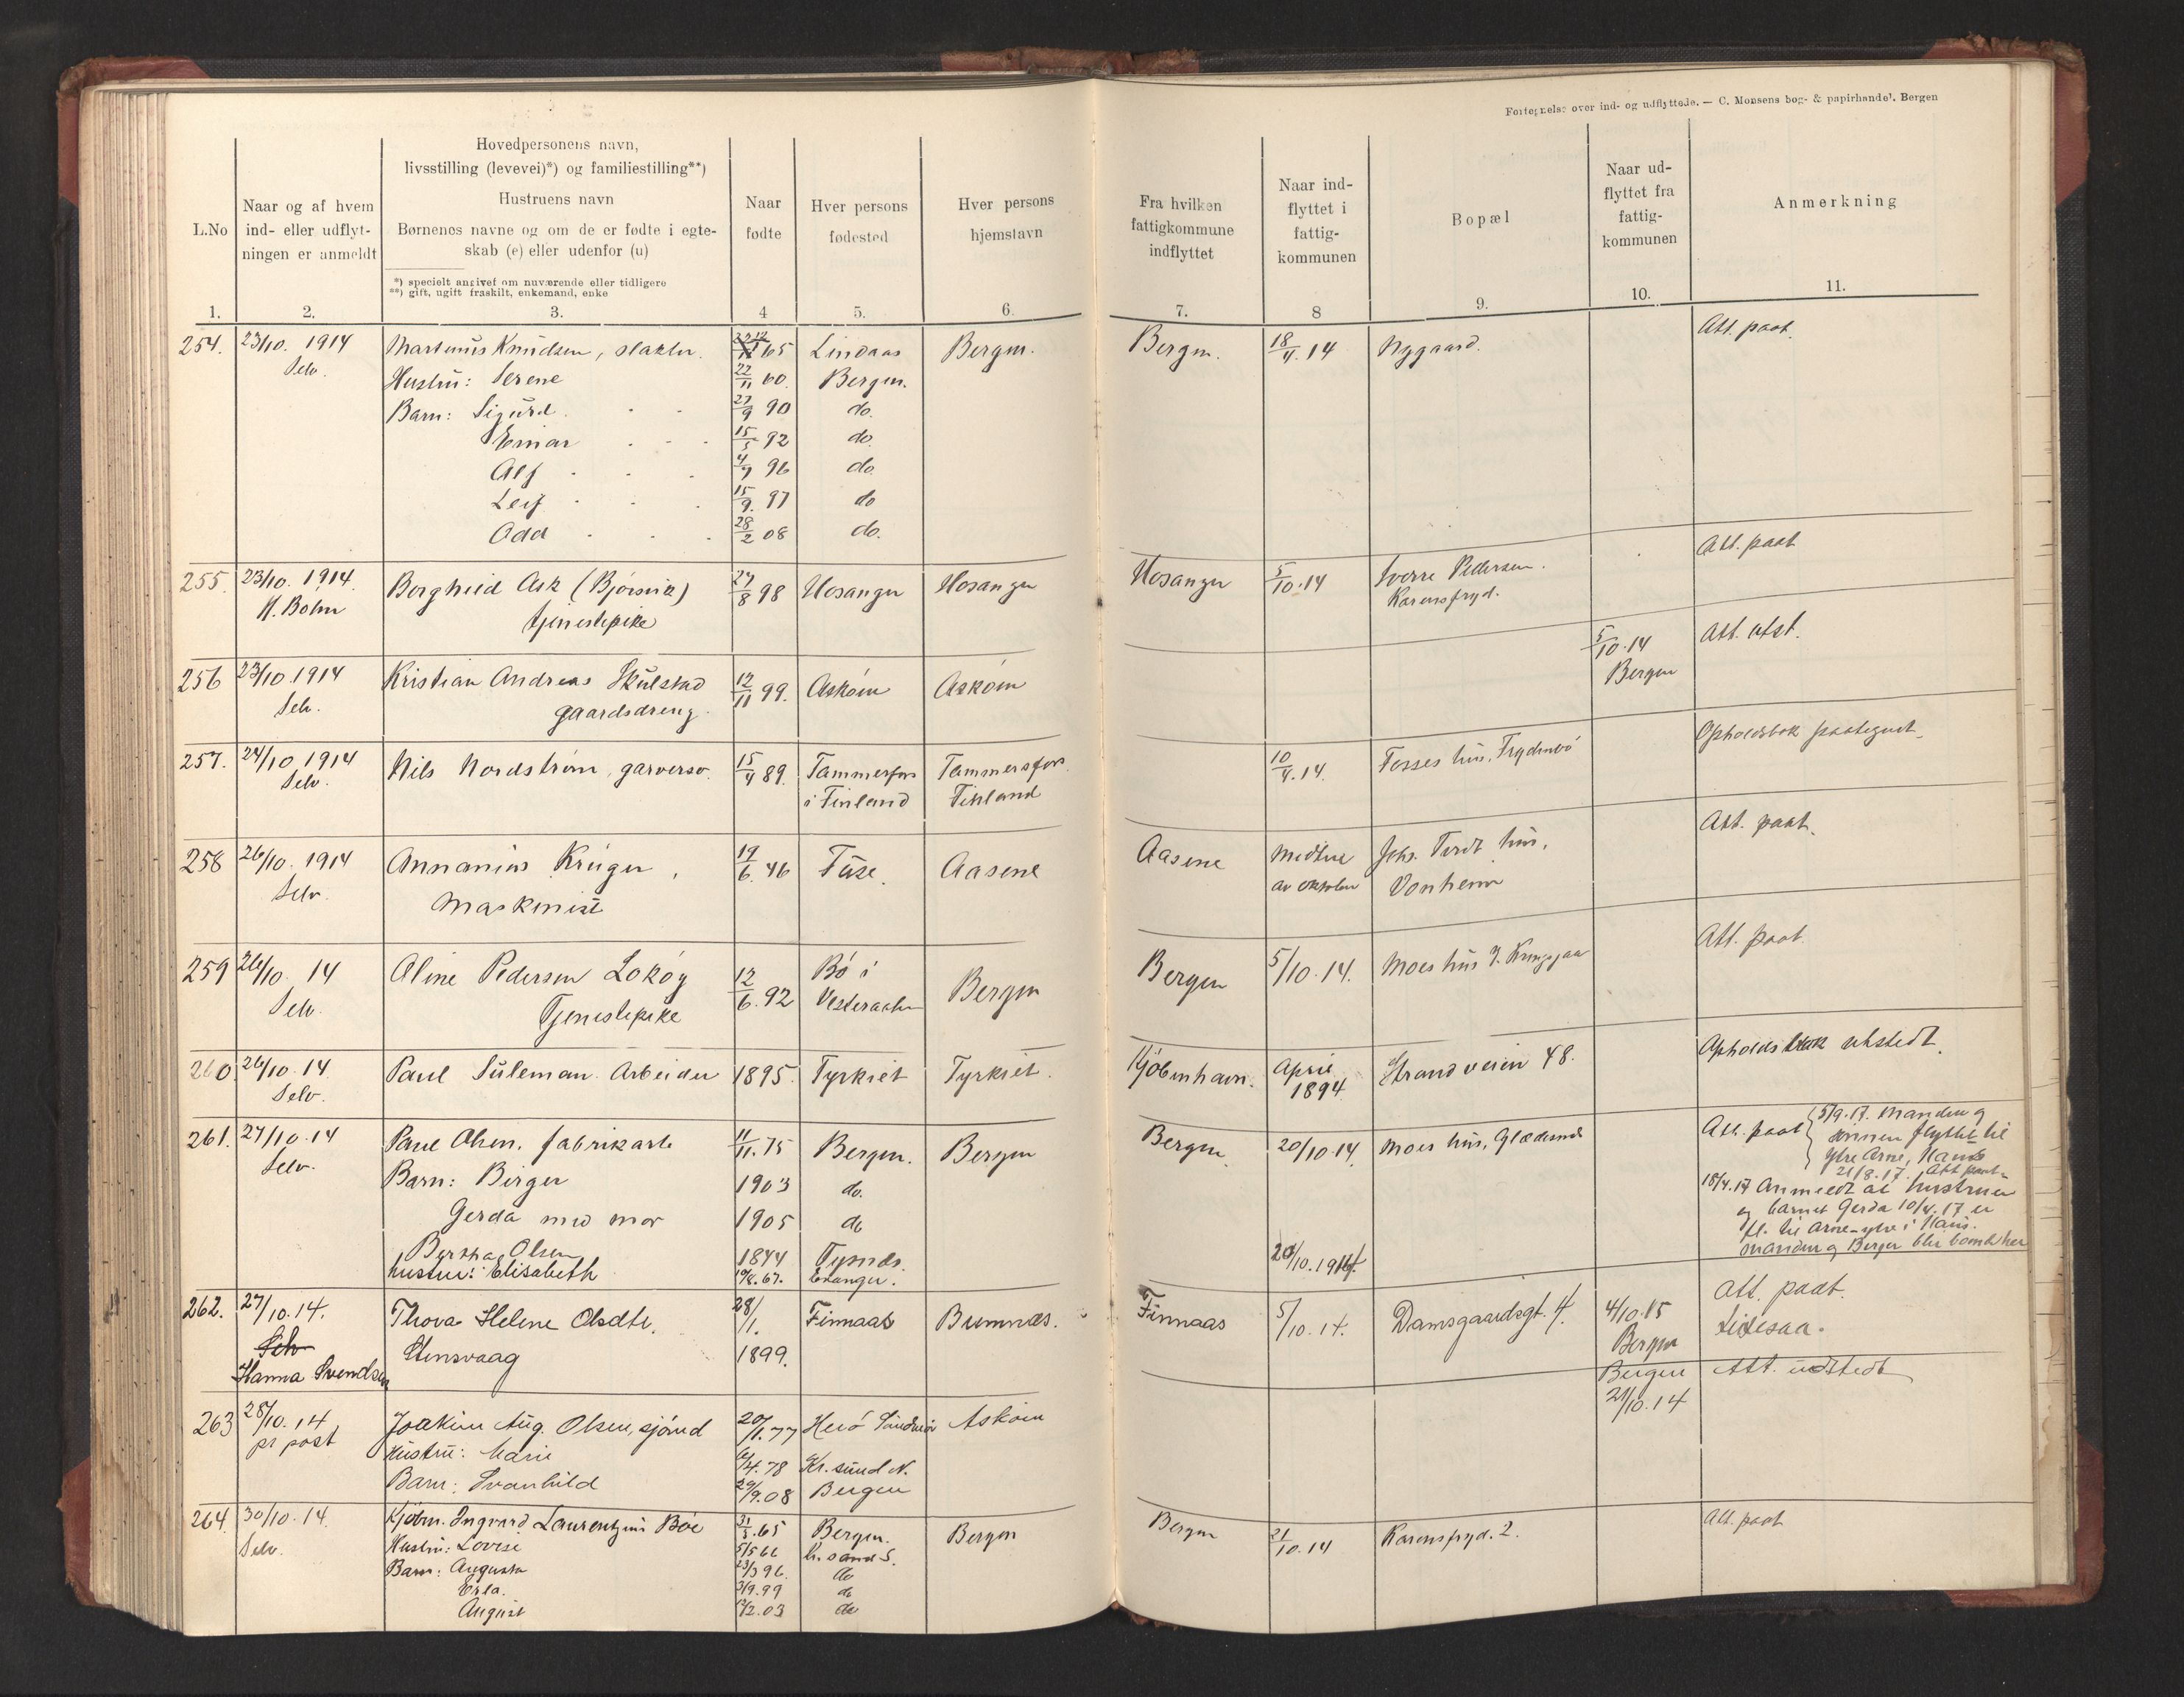 Fortegnelse over ind- og udflyttede. — C. Monsens bog- & papirhandel. Bergen
L.No
Naar og af hvem ind- eller udflyt-ningen er anmeldt
Hovedpersonens navn,
livsstilling (levevei)*) og familiestilling**)
Hustruens navn
Børnenes navne og om de er fødte i egte-
skab (e) eller udenfor (u)
*) specielt angivet om nuværende eller tidligere
**) gift, ugift fraskilt, enkemand, enke
Naar fødte
Hver persons fødested
Hver persons hjemstavn
Fra hvilken fattigkommune indflyttet
Naar ind-flyttet i fattig-kommunen
Bopæl
Naar ud-flyttet fra fattig-kommunen
Anmerkning
1. 2. 3. 4 5. 6. 7. 8 9. 10. 11.
254. 23/10. 1914 Martinus Knudsen, slakter. 65 Lindaas Bergen. Bergen. 18/4.14 Nygaard. Att. paat.
Selv. Hustru: Serene 22/11 60. Bergen.
Barn: Sigurd 27/9 90 do.
Einar 15/5 92 do
Alf 4/7 96 do
Leif 15/9. 97 do
Odd 28/2 08 do.
255. 23/10. 1914. Borghild Ask (Bjørsvik) 27/8 98 Hosanger Hosanger Hosanger 5/10.14 Sverre Pedersen. Att. paat
H. Bolm tjenestepike Karensfryd.
256 23/10.1914 Kristian Andreas Skulstad 12/11 99. Askøen Askøen 5/10.14 Att. utst.
Selv. gaardsdreng. Bergen
257. 24/10 1914 Nils Nordstrøm, garversv. 15/4 89. Tammerfors Tammersfors 10/4.14. Fosses hus, Frydenbø Opholdsbok paategnet
Selv. i Finland Finland
258 26/10. 1914 Annanias Krüger, 19/6. 46 Fuse. Aasene Aasene Midten Johs. hus, Att. paat.
Selv. Maskinist av oktober Vonheim
259 26/10. 14 Oline Pedersen Lokøy 12/6. 92 Bø i Bergen Bergen 5/10.14. Moes hus Att. paat.
Selv. Tjenestepike Vesteraalen
260 26/10.14 Paul Suleman Arbeider 1895. Tyrkiet Tyrkiet. Kjøbenhavn. April Strandveien 48. Opholdsbok utstedt.
Selv. 1894
261. 27/10.14 Paul Olsen, fabrikarb. 11/11.75 Bergen. Bergen Bergen 20/10.14. Moes hus, Att. paat 5/9.17. Manden og
Selv. konen flyttet til
Ytre Arne, Haus
21/8.17. Att paat.
Barn: Birger 1903 do. 18/4.17 Anmeldt at hustruen
Gerda med mor 1905 do og barnet Gerda 10/4.17 er
fl. til Arne-ytre i Haus.
Bertha Olsen 1844 20/10.1914. Manden og Birger blir boende her
hustru: Elisabeth 67.
262. 27/10.14. Thova Helene Olsdtr. 28/1. Finnaas Bremnes. Finnaas 5/10.14. Damsgaardsgt. 4. 4/10.15 Att. paat.
Selv Stensvaag 1899. Bergen
Hanna Svendsen
263 28/10.14 Joakim Aug. Olsen, sjømd 20/1.77 Herø Søndmør Askøen Bergen Att. udstedt
pr post Hustru: Marie 78 Kr. sund N. 21/10.14
Barn: Svanhild 08 Bergen
264. 30/10.14 Kjøbm. Ingvard Laurentzius Bøe 65 Bergen. Bergen Bergen 21/10.14 Karensfryd. 2. Att. paat
Selv. Hustru: Lovise 5/5 66 Kr. sand S.
Barn: Augusta 23/3 96. do
Erla. 3/9.99 do
August 2.03 do